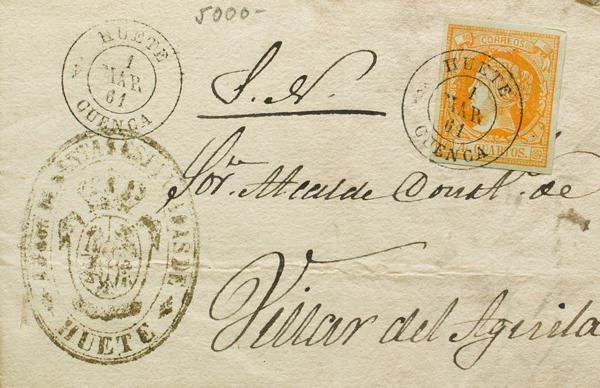 5000-
HUETE
1
MAR
61
CUENCA
CORREOS
HUETE
1
MAR
61
CUENCA
CUARTOS.
S. N.
Sor. Alcalde Const. de
Villar del Aguila
HUETE